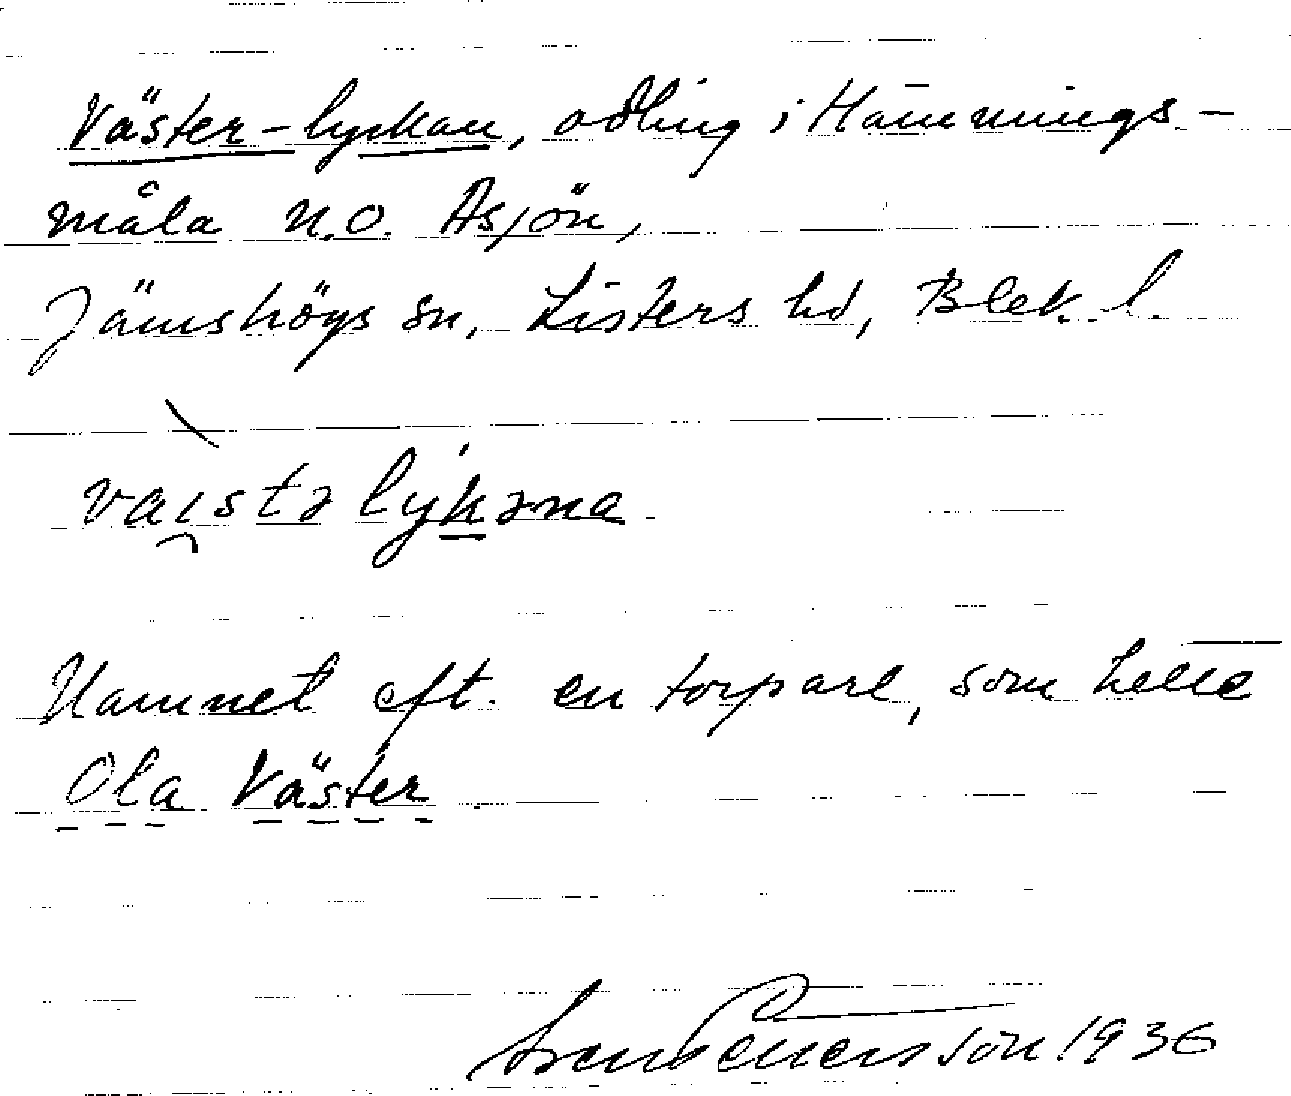 Väster-lyckan, odling i Hämmings-
måla n.o. Åsjön,
Jämshögs sn, Listers hd, Blek. l.
vai̯stə lyk̲əna
Namnet eft. en torpare, som hette
Ola Väster
Sven Pettersson 1936